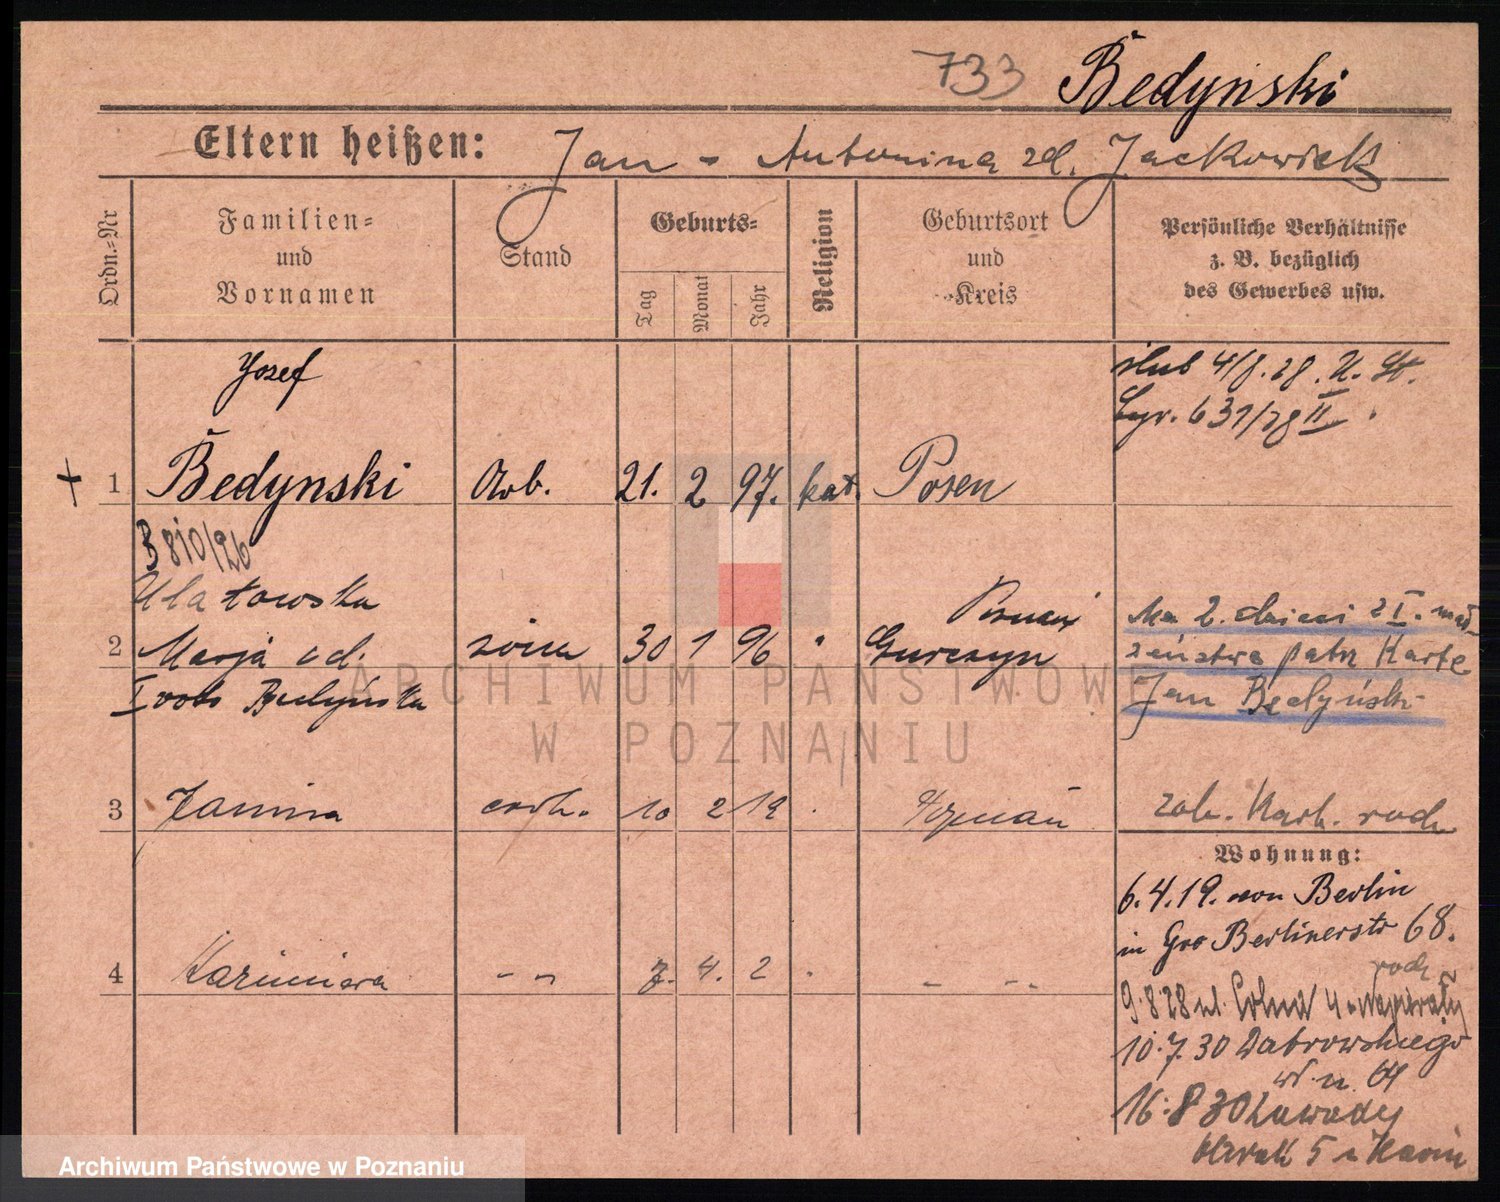 733 Bedyński
Eltern heißen: Jan - Antonina zd. Jackowiak
Ordn.=Nr
Familien=
und
Vornamen
Stand
Geburts=
Tag
Monat
Jahr
Religion
Geburtsort
und
Kreis
Persönliche Verhältnisse
z. B. bezüglich
des Gewerbes usw.
Josef
ślub 4/8.28. U. St.
631/28 II
+ 1 Bedynski Arb. 21. 2 97. kat. Posen
B 810/26
Ulatowska
2 Marja żona 30 1 96 " Poznań
Gurczyn
I voto Bedyńska
Ma 2. dzieci z I. mał-
żeństwa patrz Karte
Jan Bedyński
3 Janina córk. 10 2 19 Poznań
zob. Kart. rodz.
Wohnung:
6.4.19. von Berlin
in Gro Berlinerstr 68.
4 Kazimiera 7. 4. 2
9.8.28 ul. 4
10.7.30 Dąbrowskiego
16.8 30 Zawady
Barak 5
ARCHIWUM PAŃSTWOWE
W POZNANIU
Archiwum Państwowe w Poznaniu